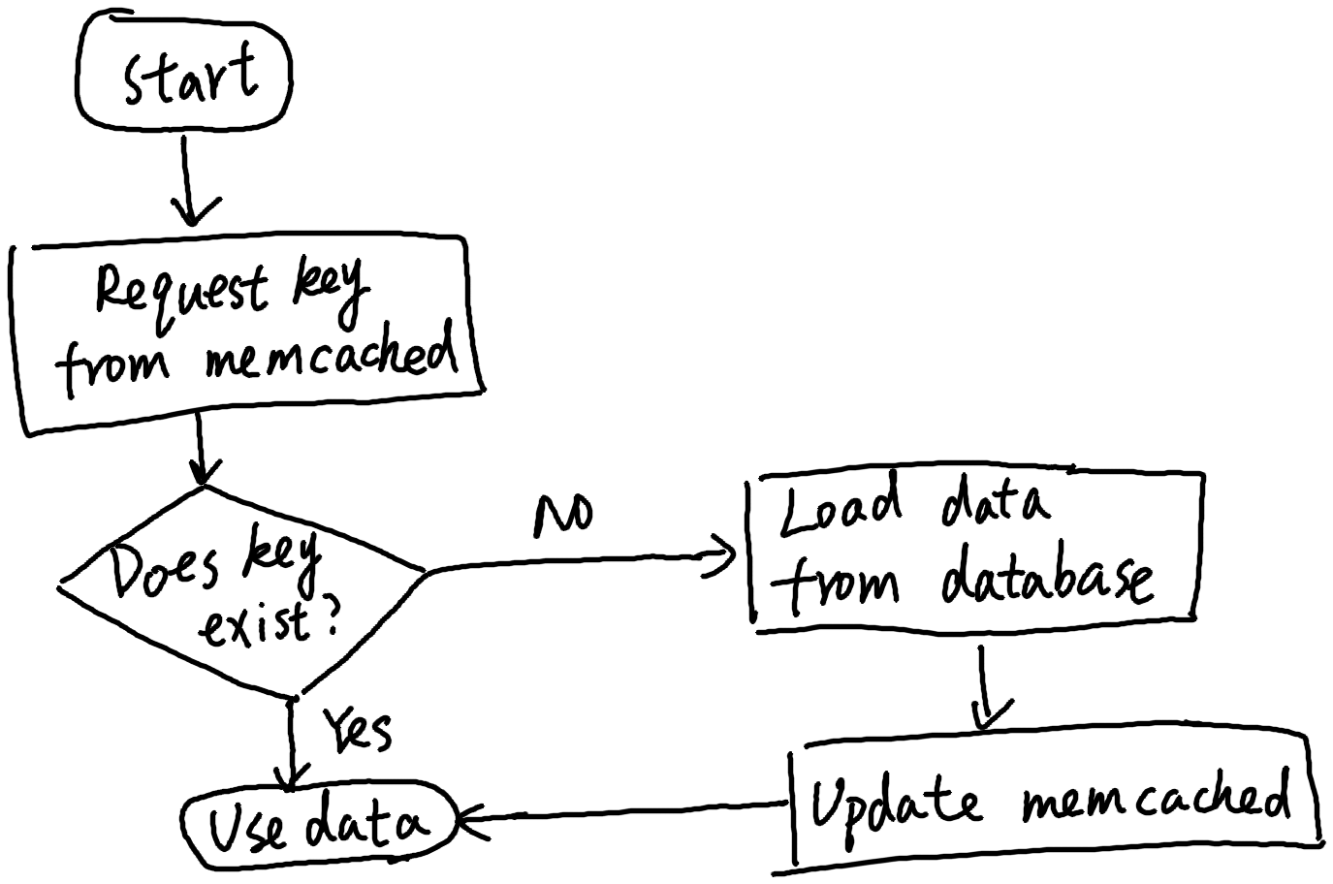 Start
Request key
from memcached
Does key
exist?
NO
Load data
from database
Yes
Use data
Update memcached